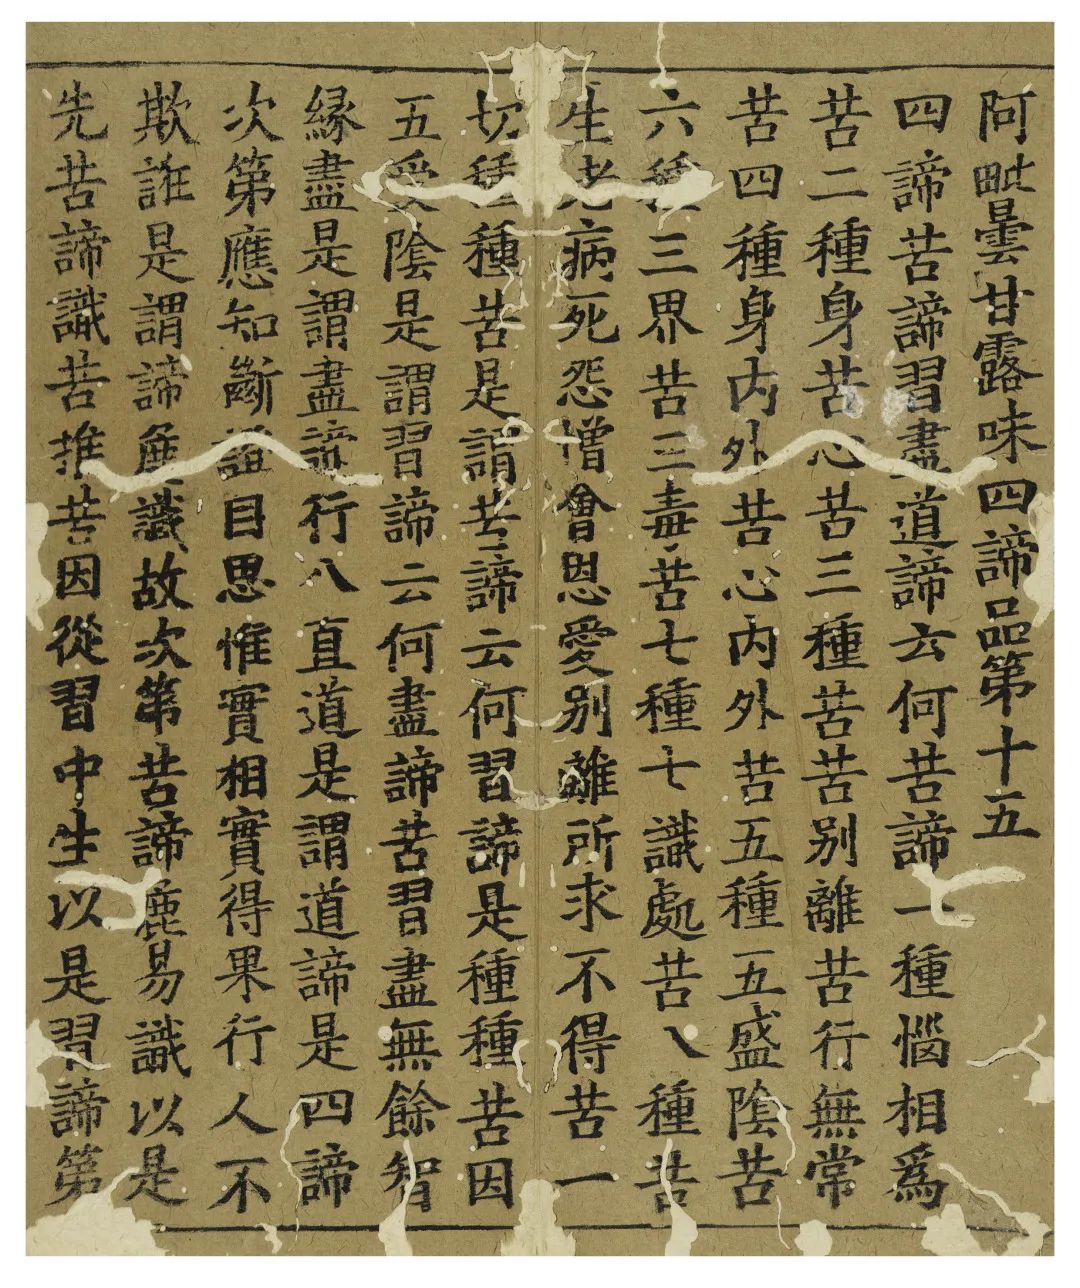 阿毗曇甘露味四諦品第十五
四諦苦諦習盡道諦云何苦諦一種惱相爲
苦二種身苦心苦三種苦苦別離苦行無常
苦四種身内外苦心内外苦五種五盛陰苦
六種三界苦三毒苦七種七識處苦八種苦
生老病死怨憎會恩愛別離所求不得苦一
切種種苦是謂苦諦云何習諦是種種苦因
五受陰是謂習諦云何盡諦苦習盡無餘智
緣盡是謂盡諦行八直道是謂道諦是四諦
次第應知斷證目思惟實相實得果行人不
欺誑是謂諦麁識故次第苦諦麁易識以是
先苦諦識苦推苦因從習中生以是習諦第